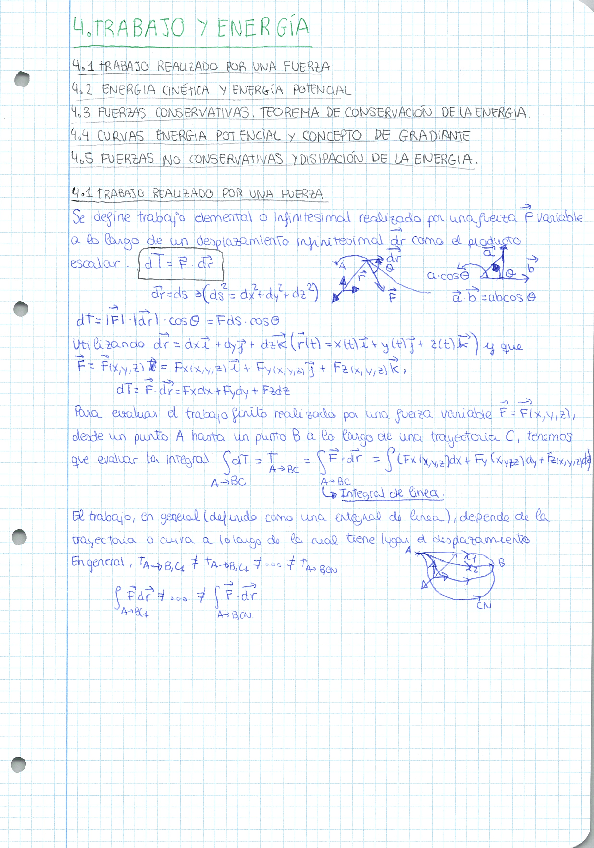 4. TRABAJO Y ENERGÍA
4.1 TRABAJO REALIZADO POR UNA FUERZA
4.2 ENERGIA CINÉTICA Y ENERGÍA POTENCIAL
4.3 FUERZAS CONSERVATIVAS. TEOREMA DE CONSERVACIÓN DE LA ENERGÍA.
4.4 CURVAS ENERGIA POTENCIAL Y CONCEPTO DE GRADIANTE
4.5 FUERZAS NO CONSERVATIVAS Y DISIPACIÓN DE LA ENERGIA.
4.1 TRABAJO REALIZADO POR UNA FUERZA
Se define trabajo elemental o infinitesimal realizado por una fuerza F⃗ variable
a lo largo de un desplazamiento infinitesimal dr⃗ como el producto
escalar. dT = F⃗ · dr⃗
A r⃗ dr⃗ θ F⃗
a·cosθ a⃗ θ b⃗
dr⃗ = ds → (ds² = dx² + dy² + dz²)
a⃗·b⃗ = abcosθ
dT = |F⃗|·|dr⃗|·cosθ = Fds·cosθ
Utilizando dr⃗ = dxi⃗ + dyj⃗ + dzk⃗ (r⃗(t) = x(t)i⃗ + y(t)j⃗ + z(t)k⃗) y que
F⃗ = F⃗(x,y,z) = Fx(x,y,z)i⃗ + Fy(x,y,z)j⃗ + Fz(x,y,z)k⃗,
dT = F⃗·dr⃗ = Fxdx + Fydy + Fzdz
Para evaluar el trabajo finito realizado por una fuerza variable F⃗ = F⃗(x,y,z),
desde un punto A hasta un punto B a lo largo de una trayectoria C, tenemos
que evaluar la integral ∫dT = T A→BC = ∫F⃗·dr⃗ = ∫(Fx(x,y,z)dx + Fy(x,y,z)dy + Fz(x,y,z)dz)
A→BC A→BC
↳ Integral de linea.
El trabajo, en general (definido como una integral de linea), depende de la
trayectoria o curva a lo largo de la cual tiene lugar el desplazamiento
En general, T A→B,C1 ≠ T A→B,C2 ≠ .... ≠ T A→B,CN
A B CN
∫F⃗dr⃗ ≠ .... ≠ ∫F⃗·dr⃗
A→BC1 A→B,CN